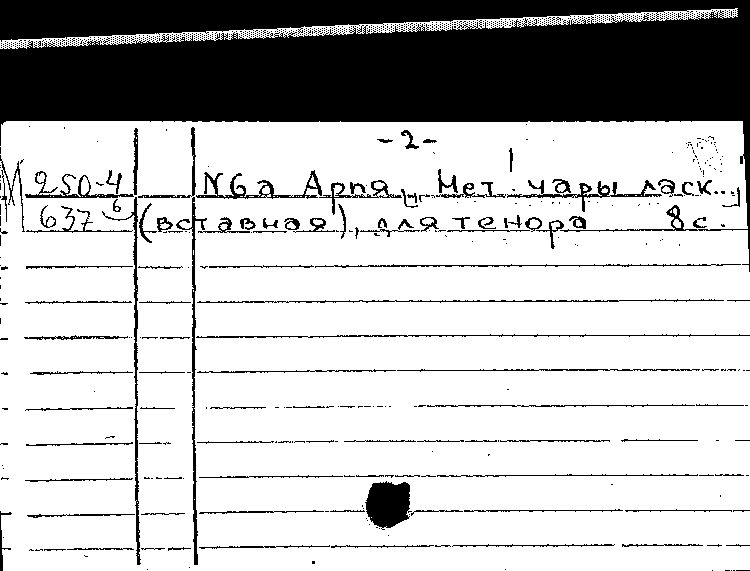 -2-
М 250-4 N6а Ария „Нет чары ласк..."
637 б (вставная), для тенора 8с.